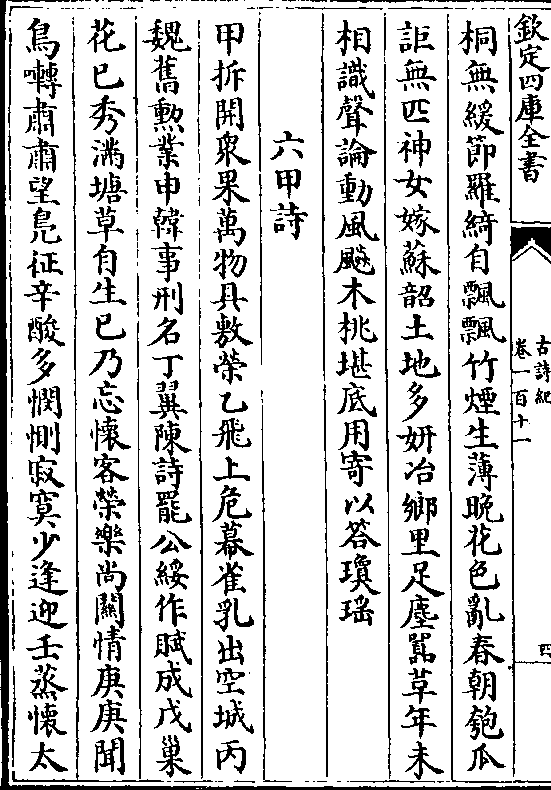 欽定四庫全書
古詩紀
卷一百十一
四
桐無緩節羅綺自飄飄竹煙生薄晚花色亂春朝匏瓜
詎無匹神女嫁蘇韶土地多妍冶鄉里足塵囂草年未
相識聲論動風飇木桃堪底用寄以答瓊瑶
六甲詩
甲拆開衆果萬物具敷榮乙飛上危幕雀乳出空城丙
魏舊勲業申韓事刑名丁翼陳詩罷公綏作賦成戊巢
花已秀滿塘草自生已乃忘懷客榮樂尚關情庚庚聞
鳥囀肅肅望鳬征辛酸多憫惻寂寞少逢迎壬蒸懷太